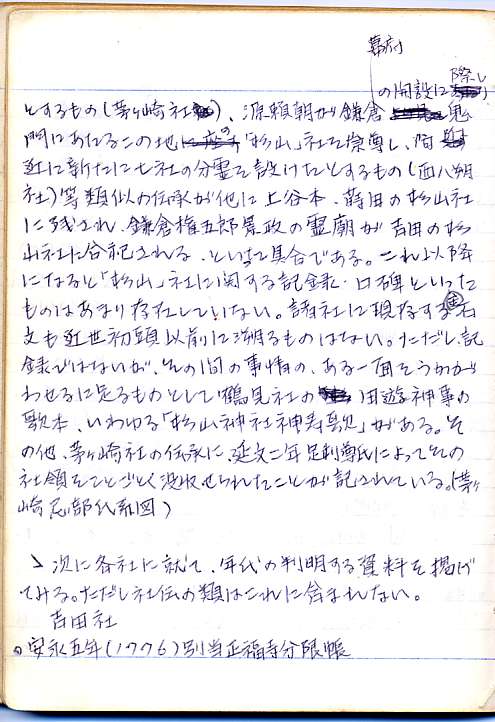 幕府
の開設に際し
とするもの(茅ヶ崎社)、源頼朝が鎌倉 鬼
門にあたるこの地の「杉山」社を崇尊し、附
近に新たに七社の分霊を設けたとするもの(西八朔
社)等類似の伝承が他に上谷本、蒔田の杉山社
に残され、鎌倉権五郎景政の霊廟が吉田の杉
山社に合祀される、といった具合である。これ以降
になると「杉山」社に関する記録、口碑といった
ものはあまり存在していない。諸社に現存する金石
文も近世初頭以前に溯るものはない。ただし、記
録ではないが、その間の事情の、ある一面をうかが
わせるに足るものとして鶴見社の田遊神事の
歌本、いわゆる「杉山神社神寿歌」がある。そ
の他、茅ヶ崎社の伝承に、延文二年足利尊氏によってその
社領をことごとく没収せられたことが記されている。(茅ヶ
崎忌部代系図)
次に各社に就て、年代の判明する資料を掲げ
てみる。ただし社伝の類はこれに含まれない。
吉田社
○安永五年(1776)別当正福寺分限帳